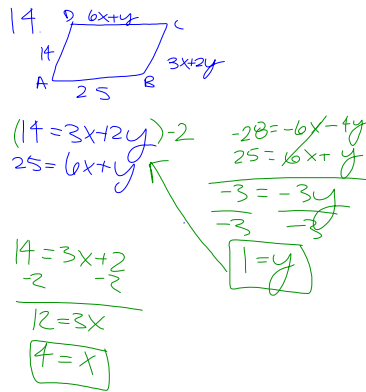 14.
D 6x+y C
14
3x+2y
A B
25
(14=3x+2y)-2
25=6x+y
-28=-6x-4y
25=6x+y
-3=-3y
-3 -3
1=y
14=3x+2
-2 -2
12=3x
4=x